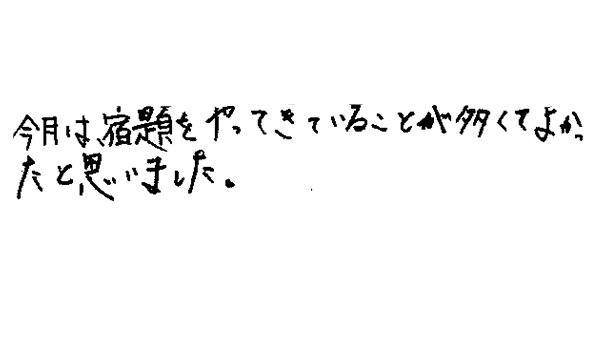 今月は、宿題をやってきていることが多くてよかっ
たと思いました。